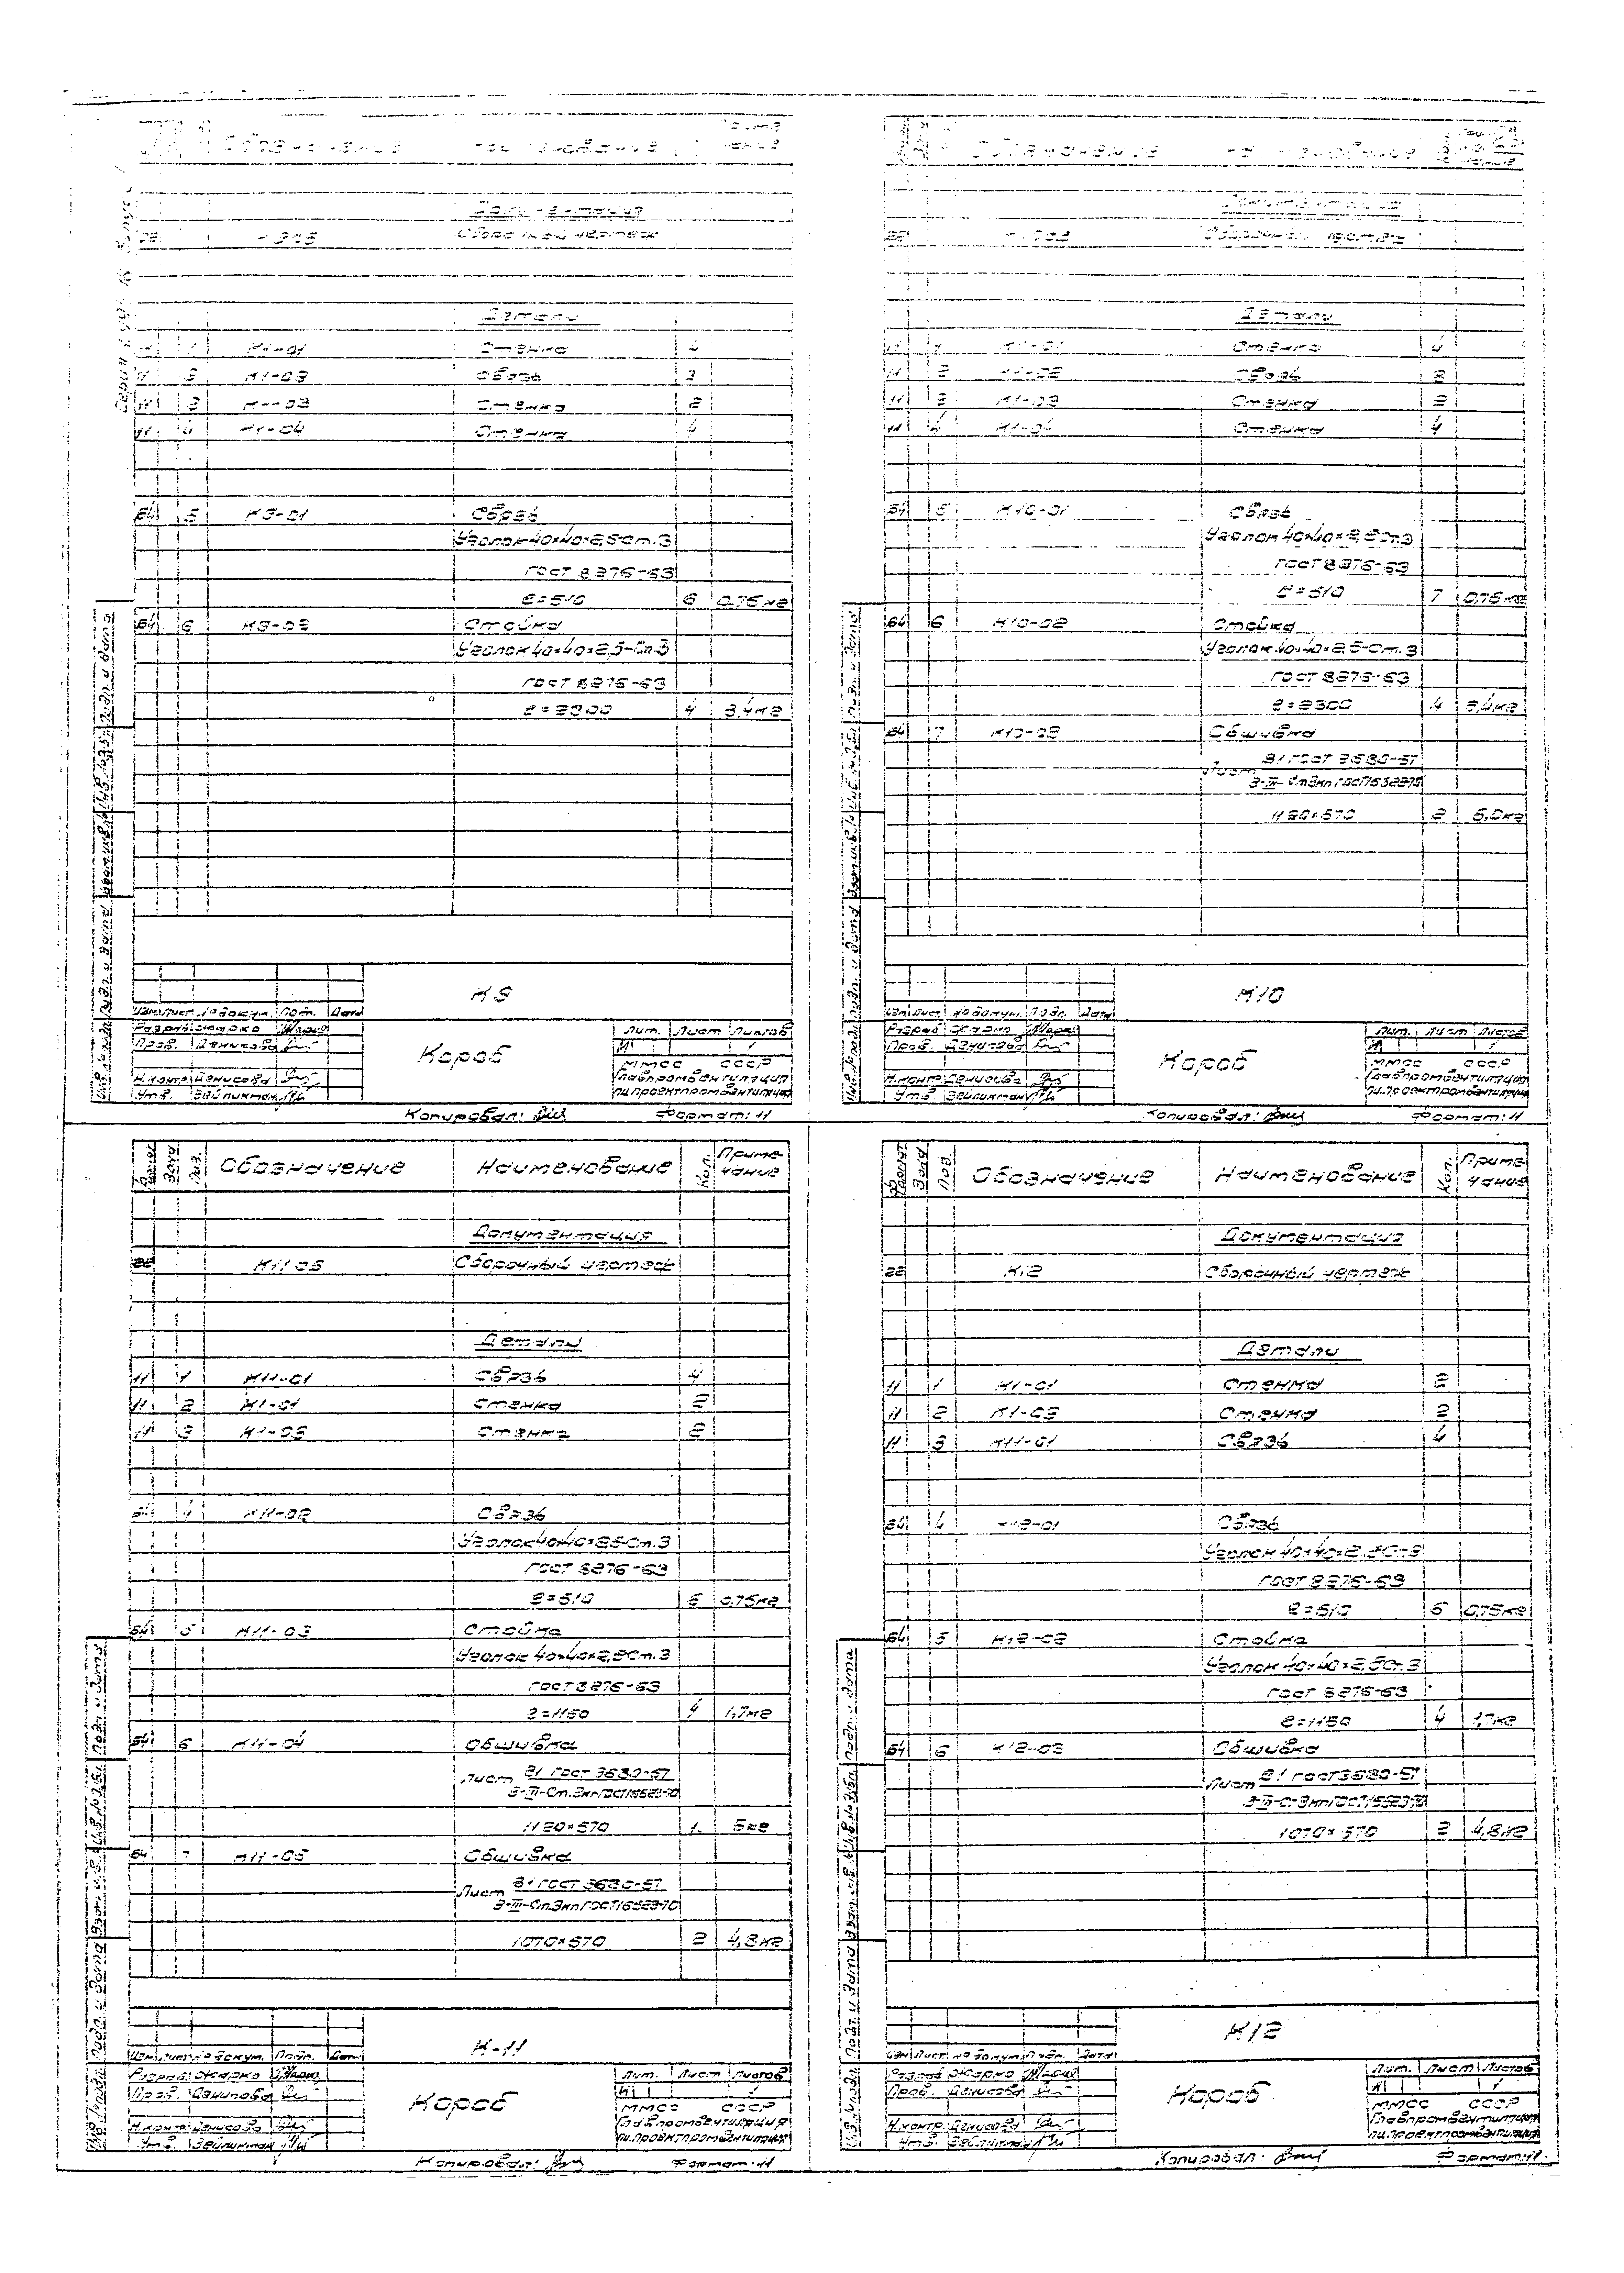 Обозначение Наименование Приме чание
Документация
К9СБ Сборочный чертеж
Детали
11 1 К1-01 Стенка 4
11 2 Связь
11 3 К1-03 Стенка 2
11 4 К1-04 Стенка 4
Б4 5 К9-01 Связь
Уголок 40×40×2,5-Ст.3
ГОСТ 8276-63
ℓ=510 6 0,75кг
Б4 6 К9-02 Стойка
Уголок 40×40×2,5-Ст.3
ГОСТ 8276-63
ℓ=2300 4 3,4кг
К9
Изм. Лист № докум. Подп. Дата
Разраб. Жарко
Пров. Денисова
Короб
Лит. Лист Листов
И 1
ММСС СССР
Главпромвентиляция
ГПИ Проектпромвентиляция
Н.контр. Денисова
Утв. Зейликман
Копировал: Формат: 11
Обозначение Наименование Приме чание
Документация
22 Сборочный чертеж
Детали
11 1 К1-01 Стенка 4
11 2 К1-02 Связь
11 3 К1-03 Стенка 2
11 4 К1-04 Стенка 4
Б4 5 К10-01 Связь
Уголок 40×40×2,5Ст.3
ГОСТ 8276-63
ℓ=510 7 0,75кг
Б4 6 К10-02 Стойка
Уголок 40×40×2,5-Ст.3
ГОСТ 8276-63
ℓ=2300 4 3,4кг
Б4 7 К10-03 Обшивка
Лист В1 ГОСТ 3680-57
3-III-Ст3кп ГОСТ16523-70
1120×570 2 5,0кг
К10
Изм. Лист № докум. Подп. Дата
Разраб. Жарко
Пров. Денисова
Короб
Лит. Лист Листов
И 1
ММСС СССР
Главпромвентиляция
ГПИ Проектпромвентиляция
Н.контр. Денисова
Утв. Зейликман
Копировал: Формат: 11
Формат Зона Поз. Обозначение Наименование Кол. Приме чание
Документация
22 К11 СБ Сборочный чертеж
Детали
11 1 К11-01 Связь 4
11 2 К1-01 Стенка 2
11 3 К1-03 Стенка 2
Б4 4 К11-02 Связь
Уголок 40×40×2,5-Ст.3
ГОСТ 8276-63
ℓ=510 6 0,75кг
Б4 5 К11-03 Стойка
Уголок 40×40×2,5Ст.3
ГОСТ 8276-63
ℓ=1150 4 1,7кг
Б4 6 К11-04 Обшивка
Лист В1 ГОСТ 3680-57
3-III-Ст.3кп ГОСТ16523-70
1120×570 1 5кг
Б4 7 К11-05 Обшивка
Лист В1 ГОСТ 3680-57
3-III-Ст.3кп ГОСТ16523-70
1070×570 2 4,8кг
К-11
Изм. Лист № докум. Подп. Дата
Разраб. Жарко
Пров. Денисова
Короб
Лит. Лист Листов
И 1
ММСС СССР
Главпромвентиляция
ГПИ Проектпромвентиляция
Н.контр. Денисова
Утв. Зейликман
Копировал: Формат: 11
Формат Зона Поз. Обозначение Наименование Кол. Приме чание
Документация
22 К12 Сборочный чертеж
Детали
11 1 К1-01 Стенка 2
11 2 К1-03 Стенка 2
11 3 К11-01 Связь 4
Б4 4 К12-01 Связь
Уголок 40×40×2,5Ст3
ГОСТ 8276-63
ℓ=510 6 0,75кг
Б4 5 К12-02 Стойка
Уголок 40×40×2,5Ст.3
ГОСТ 8276-63
ℓ=1150 4 1,7кг
Б4 6 К12-03 Обшивка
Лист В1 ГОСТ3680-57
3-III-Ст3кп ГОСТ16523-70
1070×570 2 4,8кг
К12
Изм. Лист № докум. Подп. Дата
Разраб. Жарко
Пров. Денисова
Короб
Лит. Лист Листов
И 1
ММСС СССР
Главпромвентиляция
ГПИ Проектпромвентиляция
Н.контр. Денисова
Утв. Зейликман
Копировал: Формат: 11